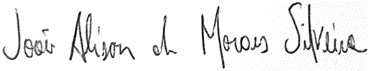 João Alison de Moraes Silveira